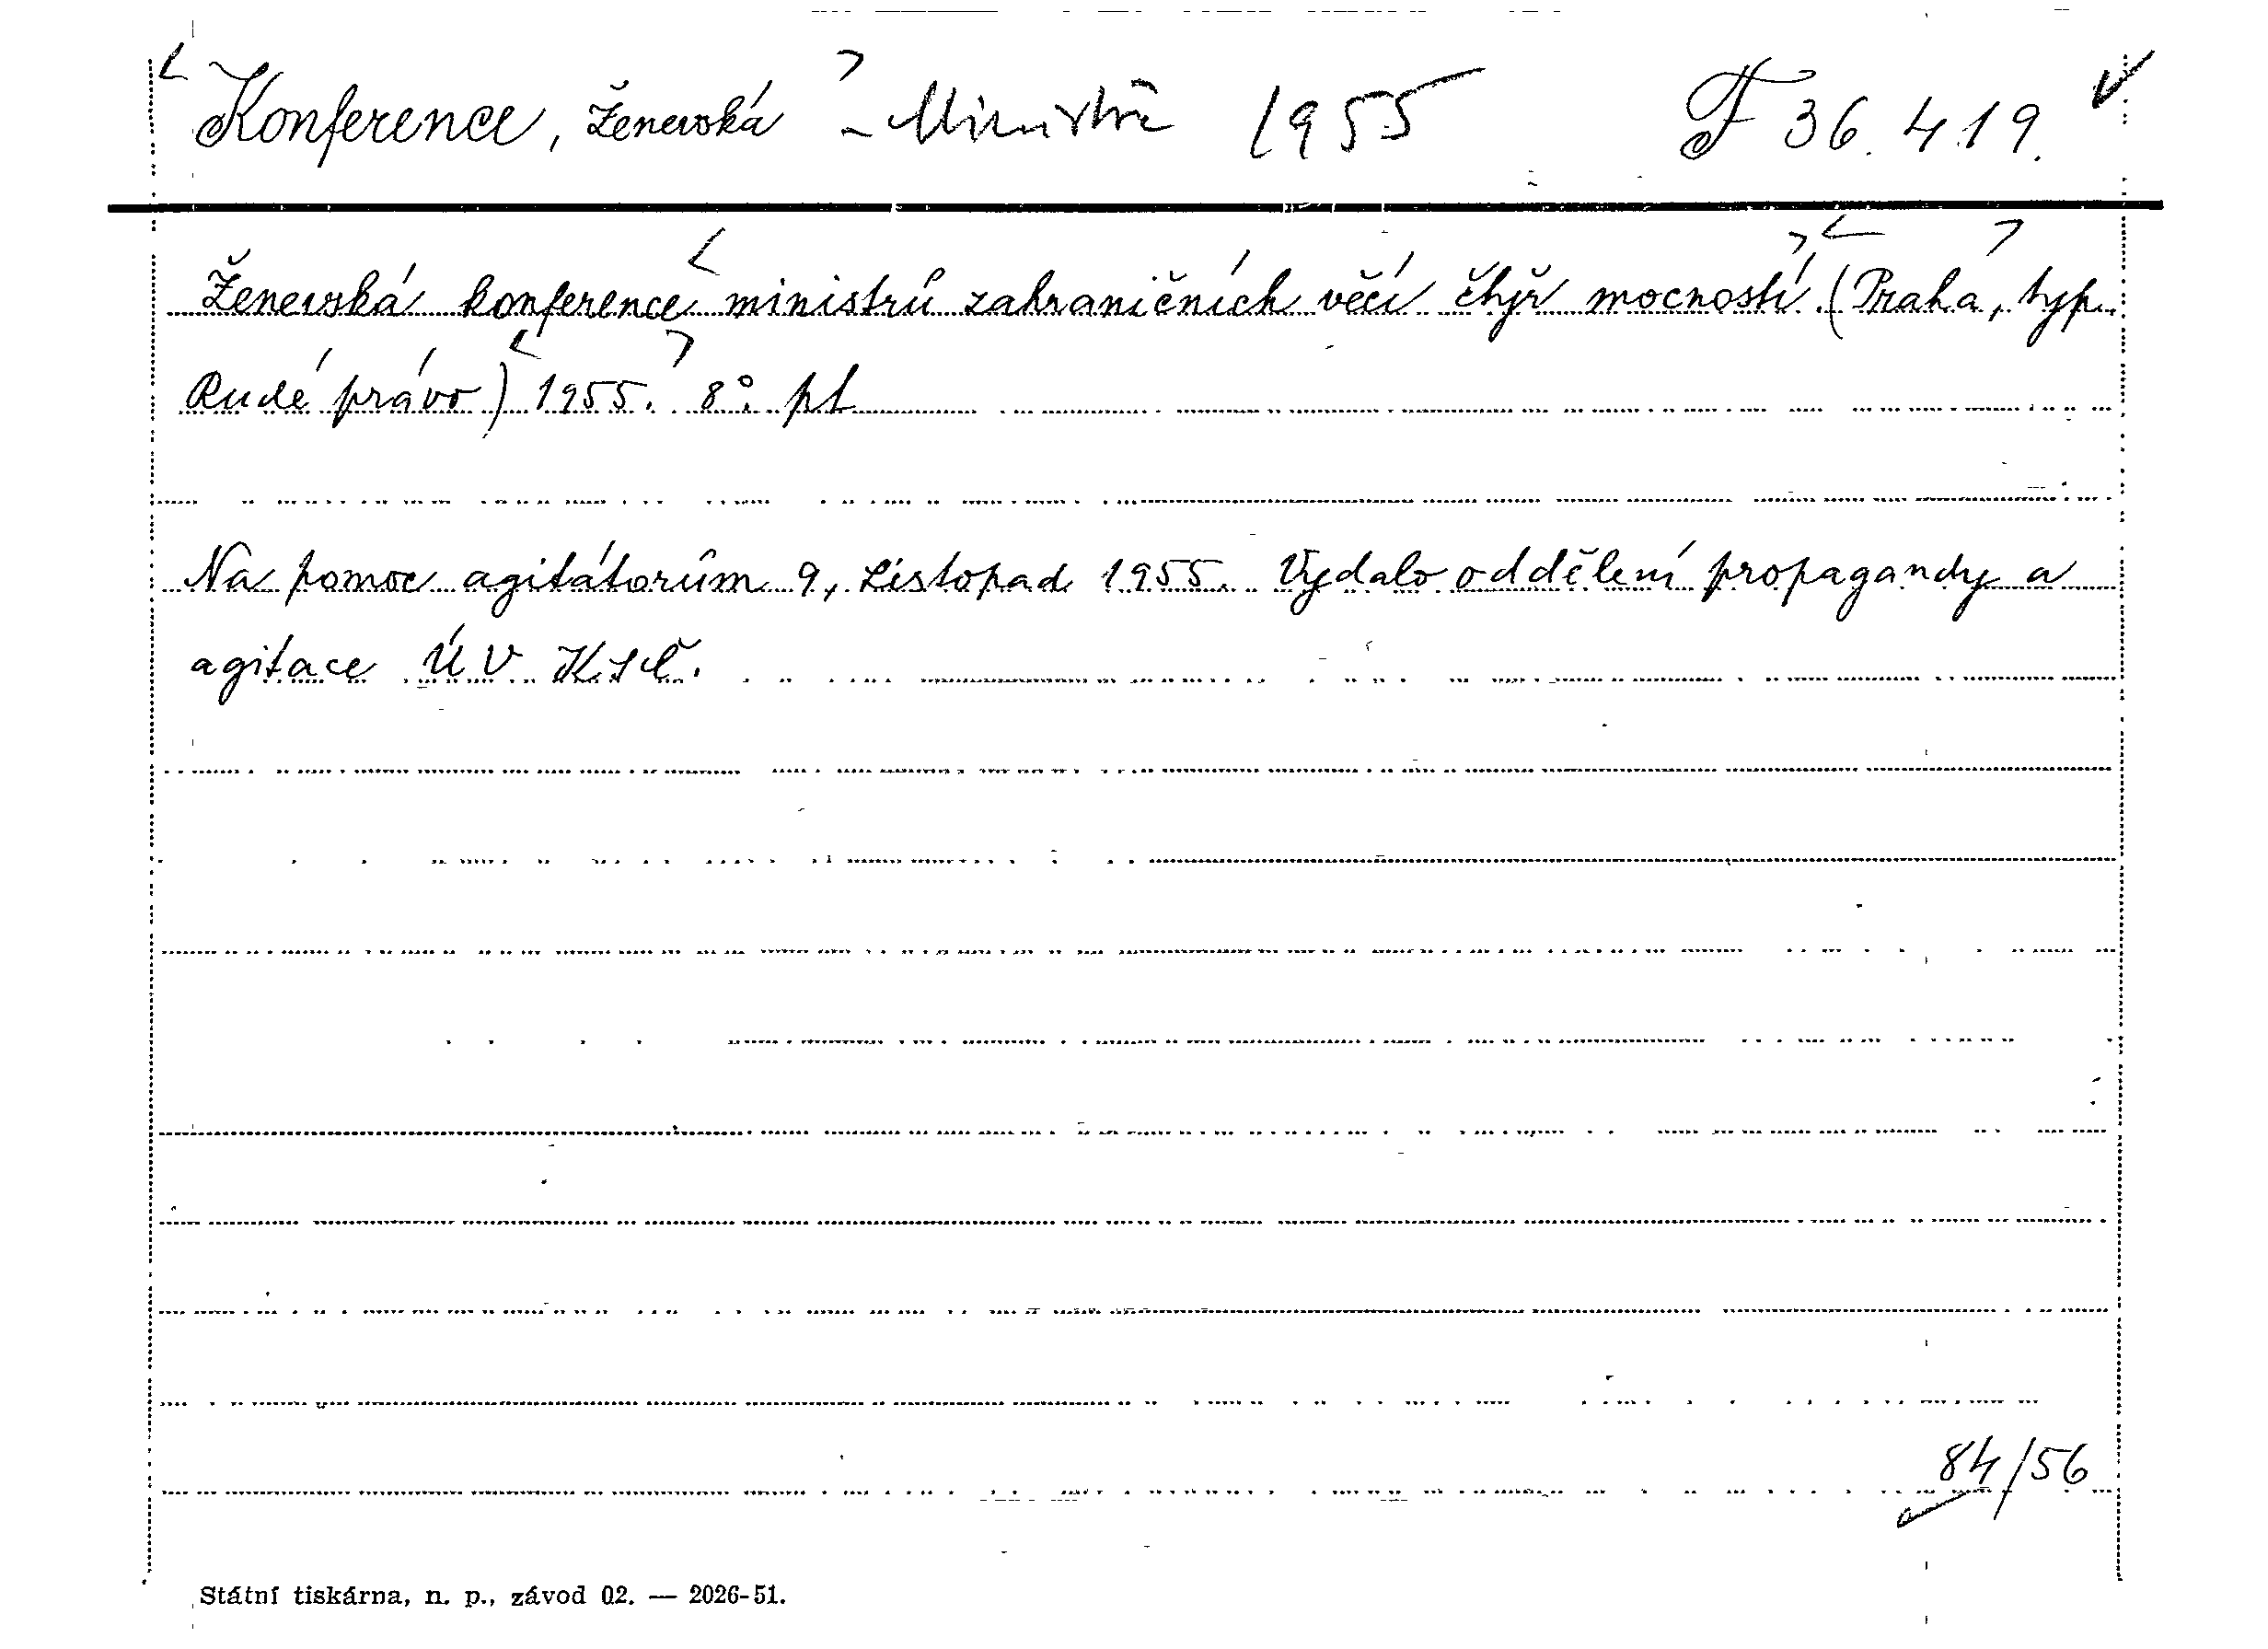 Konference, Ženevská - Ministrů 1955 F 36.419.
Ženevská konference ministrů zahraničních věcí čtyř mocností. (Praha, typ.
Rudé právo) 1955. 8°. pl
Na pomoc agitátorům 9, Listopad 1955. Vydalo oddělení propagandy a
agitace ÚV KSČ.
84/56
Státní tiskárna, n. p., závod 02. — 2026-51.